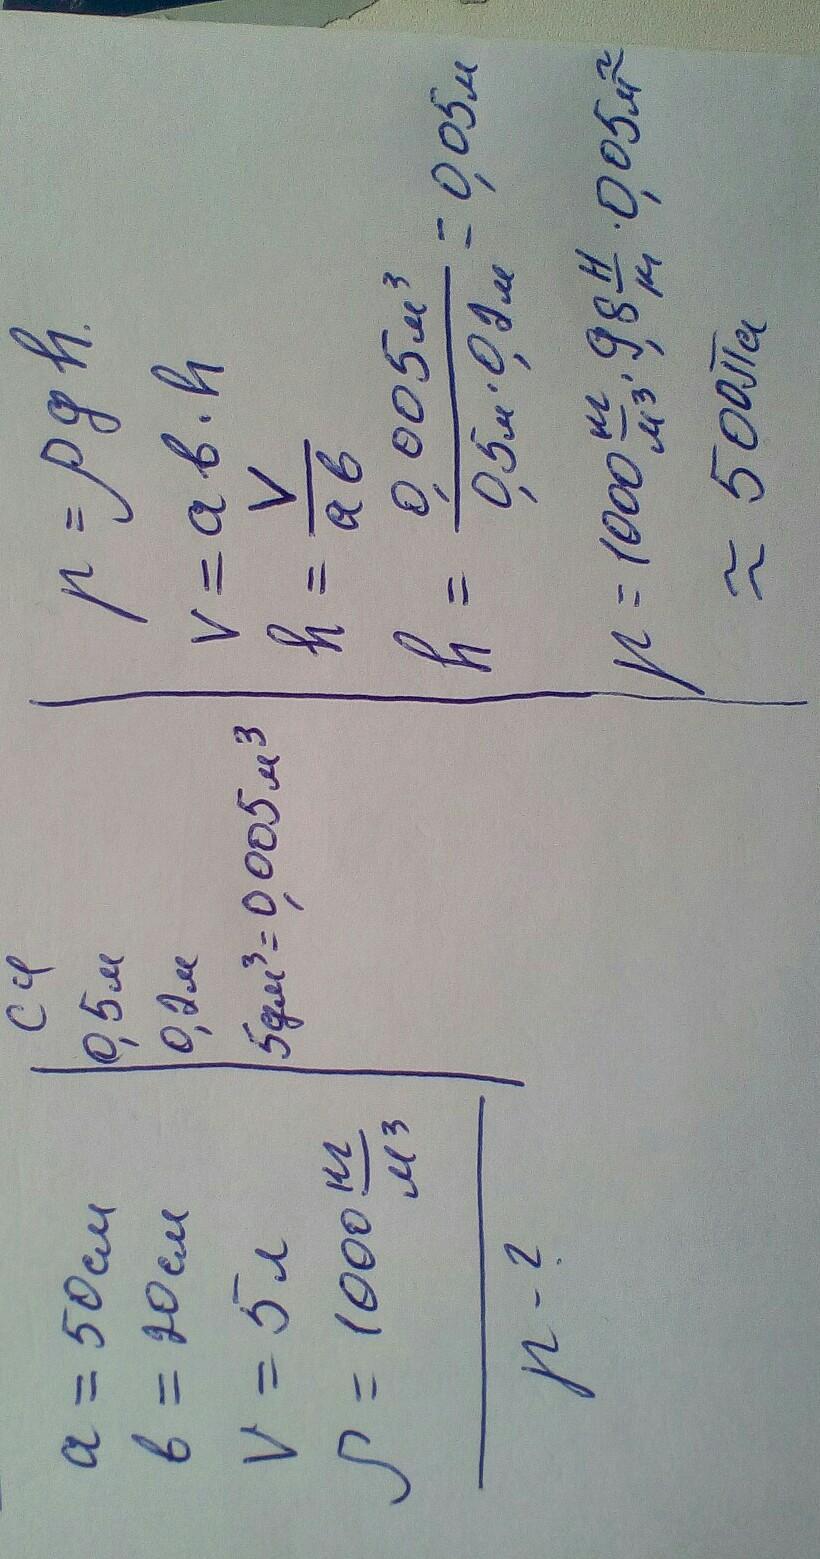 a = 50 см
в = 20 см
V = 5 л
ρ = 1000 кг/м³
p - ?
СИ
0,5 м
0,2 м
5 дм³ = 0,005 м³
p = ρgh.
V = aв·h
h = V/aв
h = 0,005 м³/0,5 м · 0,2 м = 0,05 м
p = 1000 кг/м³ · 9,8 Н/кг · 0,05 м ≈
≈ 500 Па